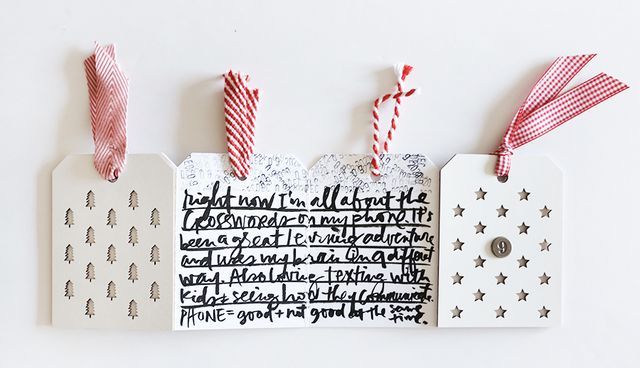 right now I'm all about the
Crosswords on my phone. It's
been a great learning adventure
and uses my brain in a different
way. Also loving texting with
kids + seeing how they communicate.
PHONE = good + not good at the same
time.
9